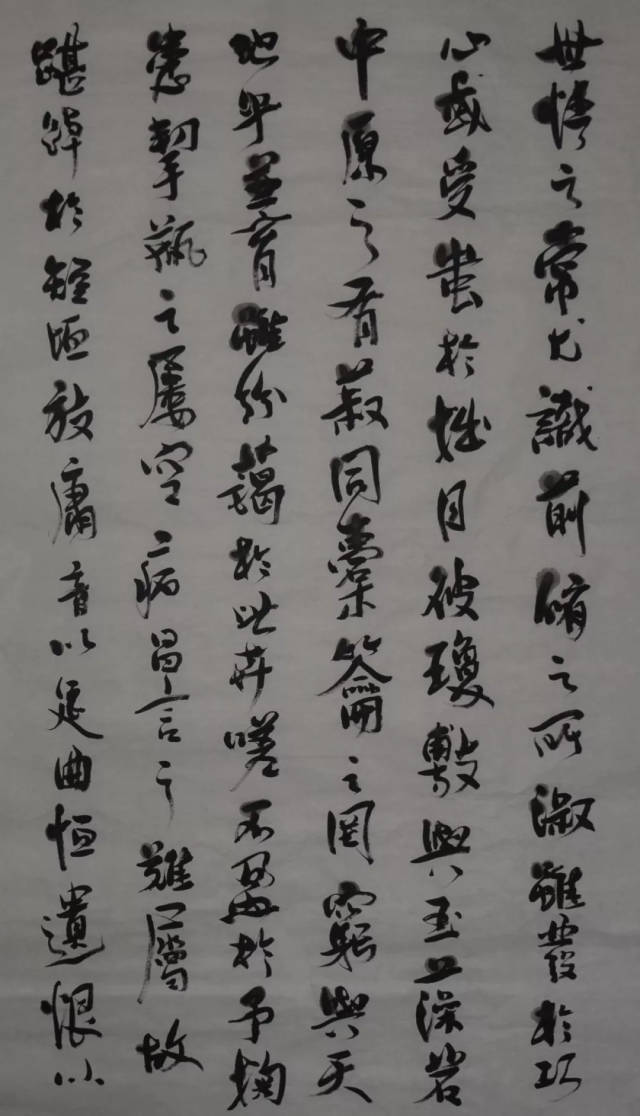 世情之常尤識前脩之所淑雖發於巧
心或受蚩於拙目彼瓊敷與玉藻若
中原之有菽同橐籥之罔窮與天
地乎並育雖紛藹於此世嗟不盈於予掬
患挈瓶之屢空病昌言之難屬故
踸踔於短垣放庸音以足曲恒遺恨以